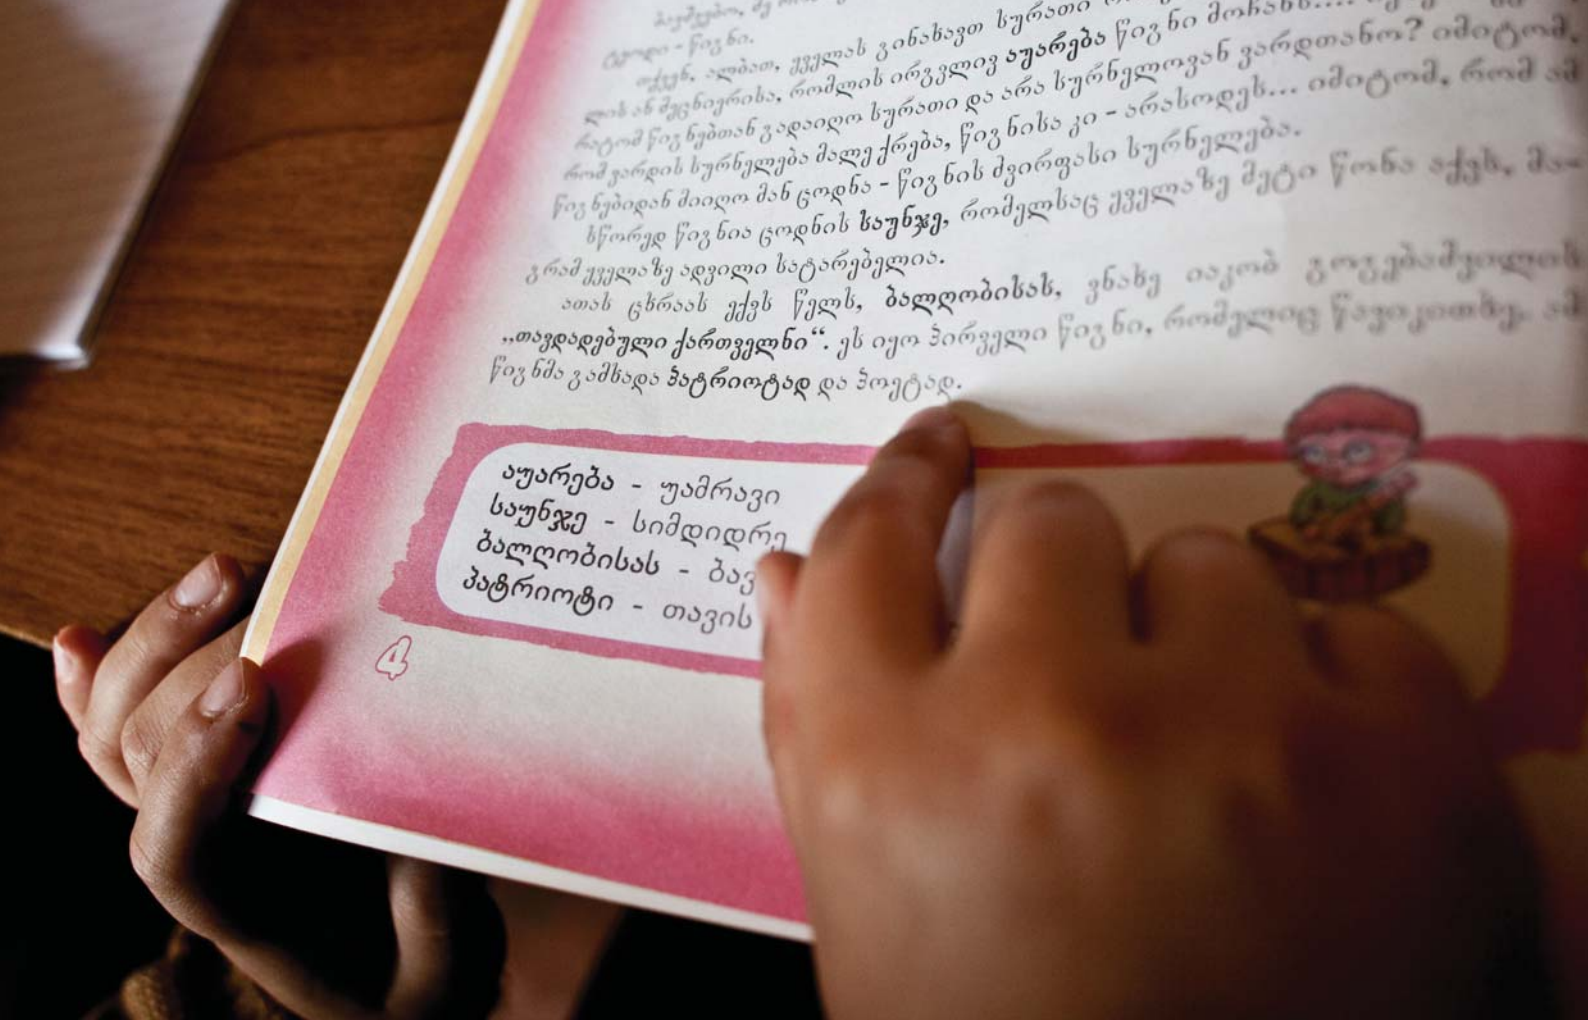 ტყოდი - წიგნი.
თქვენ, ალბათ, ყველას გინახავთ სურათი
ლის ან მეცნიერისა, რომლის ირგვლივ აუარება წიგნი მოჩანს....
რატომ წიგნებთან გადაიღო სურათი და არა სურნელოვან ვარდთანო? იმიტომ,
რომ ვარდის სურნელება მალე ქრება, წიგნისა კი - არასოდეს... იმიტომ, რომ ამ
წიგნებიდან მიიღო მან ცოდნა - წიგნის ძვირფასი სურნელება.
სწორედ წიგნია ცოდნის საუნჯე, რომელსაც ყველაზე მეტი წონა აქვს, მა-
გრამ ყველაზე ადვილი სატარებელია.
ათას ცხრაას ექვს წელს, ბალღობისას, ვნახე იაკობ გოგებაშვილის
„თავდადებული ქართველნი“. ეს იყო პირველი წიგნი, რომელიც წავიკითხე. ამ
წიგნმა გამხადა პატრიოტად და პოეტად.
აუარება - უამრავი
საუნჯე - სიმდიდრე
ბალღობისას - ბავ
პატრიოტი - თავის
4